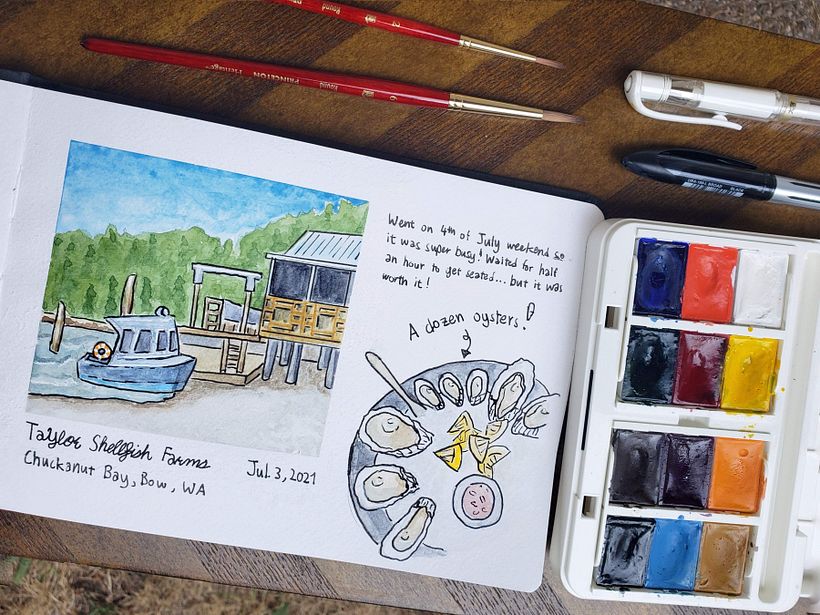 Round
PRINCETON Heritage
Round
6
Went on 4th of July weekend so
it was super busy! Waited for half
an hour to get seated... but it was
worth it!
A dozen oysters!
Taylor Shellfish Farms
Chuckanut Bay, Bow, WA
Jul. 3, 2021